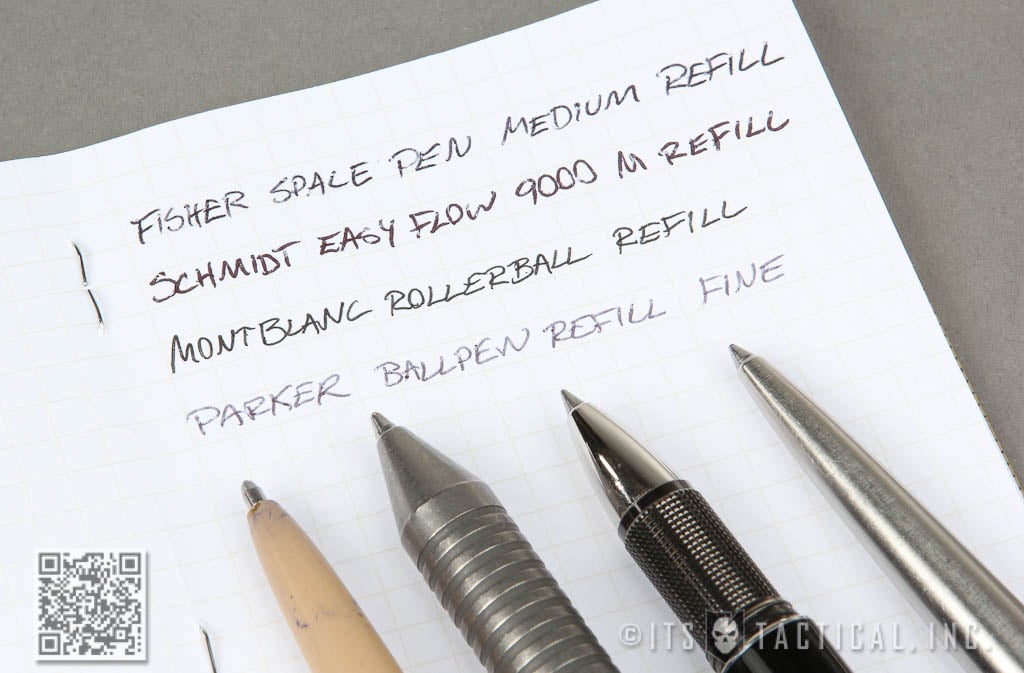 FISHER SPACE PEN MEDIUM REFILL
SCHMIDT EASY FLOW 9000 M REFILL
MONTBLANC ROLLERBALL REFILL
PARKER BALLPEN REFILL FINE
©ITS TACTICAL, INC.